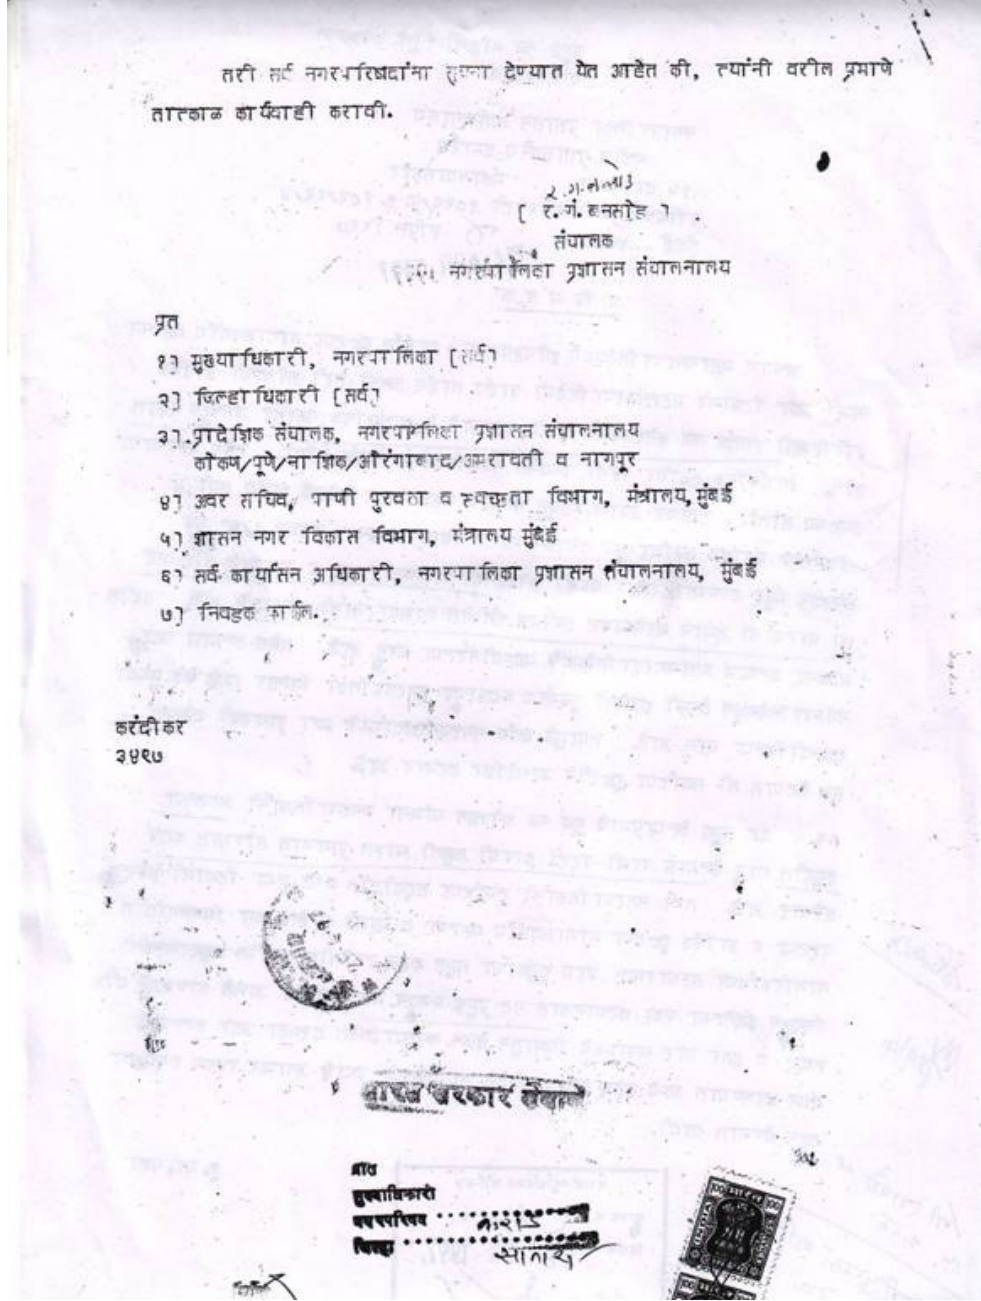 तरी सर्व नगरपरिषदांना सुचना देण्यात येत आहेत की, त्यांनी वरील प्रमाणे
तात्काळ कार्यवाही करावी.
[ र. गं. बनसोड ]
संचालक
नगरपालिका प्रशासन संचालनालय
प्रत
१] मुख्याधिकारी, नगरपालिका [सर्व]
२] जिल्हाधिकारी [सर्व]
३] प्रादेशिक संचालक, नगरपालिका प्रशासन संचालनालय
कोकण/पुणे/नाशिक/औरंगाबाद/अमरावती व नागपूर
४] अवर सचिव, पाणी पुरवठा व स्वच्छता विभाग, मंत्रालय, मुंबई
५] शासन नगर विकास विभाग, मंत्रालय मुंबई
६] सर्व कार्यासन अधिकारी, नगरपालिका प्रशासन संचालनालय, मुंबई
७] निवडक फाईल.
करंदीकर
३४९७
भारत सरकार सेवार्थ
प्रति
मुख्याधिकारी
नगरपरिषद कराड
जिल्हा सातारा